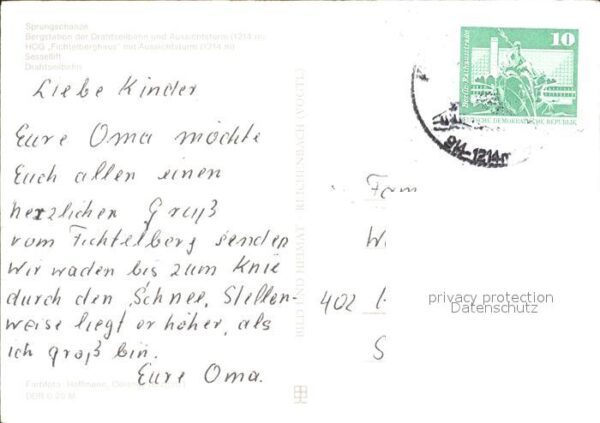 Sprungschanze
Bergstation der Drahtseilbahn und Aussichtsturm (1214 m)
HOG „Fichtelberghaus" mit Aussichtsturm (1214 m)
Sessellift
Drahtseilbahn
Liebe Kinder
Eure Oma möchte
Euch allen einen
herzlichen Gruß
vom Fichtelberg senden
Wir waden bis zum Knie
durch den Schnee, Stellen-
weise liegt er höher, als
ich groß bin.
Eure Oma.
Farbfoto: Hoffmann,
DDR 0,20 M
BILD UND HEIMAT REICHENBACH (VOGTL)
10
Berlin, Rathausstraße
DEUTSCHE DEMOKRATISCHE REPUBLIK
914-1214
Fam
W
402
S
privacy protection
Datenschutz